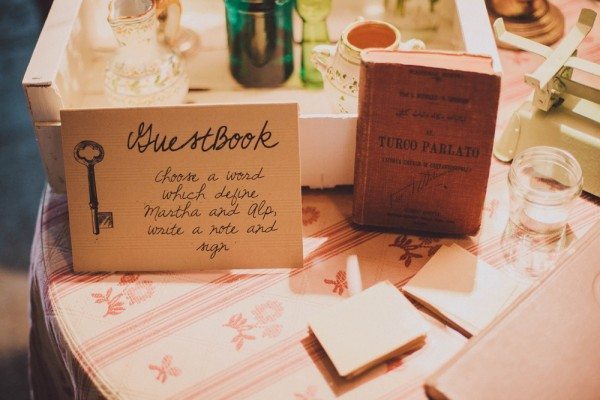 GuestBook
Choose a word
which define
Martha and Alp,
write a note and
sign
AL
TURCO PARLATO